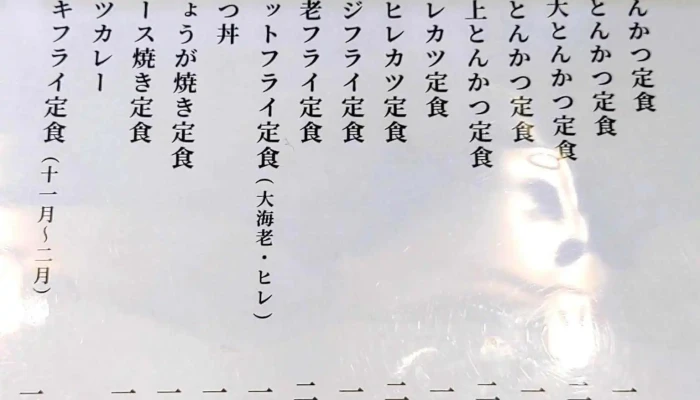 んかつ定食
とんかつ定食
大とんかつ定食
とんかつ定食
上とんかつ定食
レカツ定食
ヒレカツ定食
ジフライ定食
老フライ定食
ットフライ定食(大海老・ヒレ)
つ丼
ょうが焼き定食
ース焼き定食
ツカレー
キフライ定食(十一月~二月)